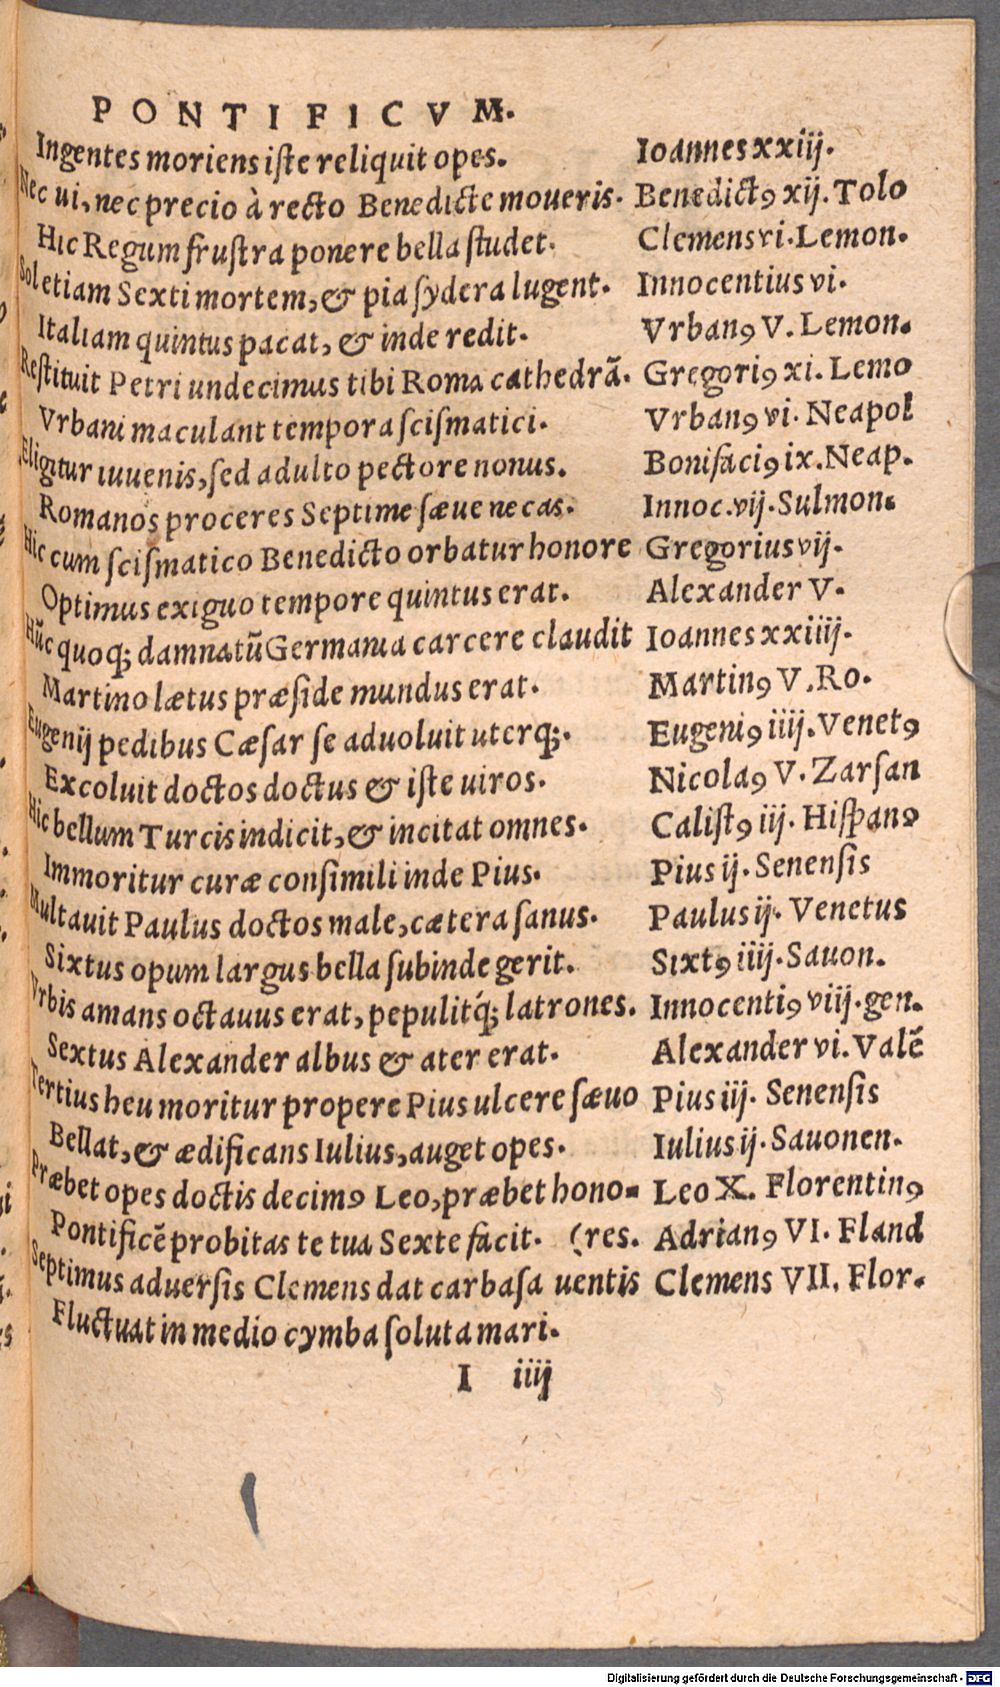 PONTIFICVM.
Ingentes moriens iſte reliquit opes. Ioannes xxiij.
Nec ui, nec precio à recto Benedicte moueris. Benedictꝰ xij. Tolo
Hic Regum fruſtra ponere bella ſtudet. Clemens vi. Lemon.
Soletiam Sexti mortem, & pia ſydera lugent. Innocentius vi.
Italiam quintus pacat, & inde redit. Vrbanꝰ V. Lemon.
Reſtituit Petri undecimus tibi Roma cathedrã. Gregoriꝰ xi. Lemo
Vrbani maculant tempora ſciſmatici. Vrbanꝰ vi. Neapol
Eligitur iuuenis, ſed adulto pectore nonus. Bonifaciꝰ ix. Neap.
Romanos proceres Septime ſæue necas. Innoc. vij. Sulmon.
Hic cum ſciſmatico Benedicto orbatur honore Gregorius vij.
Optimus exiguo tempore quintus erat. Alexander V.
Hũc quoqꝫ damnatũ Germania carcere claudit Ioannes xxiiij.
Martino lætus præſide mundus erat. Martinꝰ V. Ro.
Eugenij pedibus Cæſar ſe aduoluit uterqꝫ. Eugeniꝰ iiij. Venetꝰ
Excoluit doctos doctus & iſte uiros. Nicolaꝰ V. Zarſan
Hic bellum Turcis indicit, & incitat omnes. Caliſtꝰ iij. Hiſpanꝰ
Immoritur curæ conſimili inde Pius. Pius ij. Senenſis
Multauit Paulus doctos male, cætera ſanus. Paulus ij. Venetus
Sixtus opum largus bella ſubinde gerit. Sixtꝰ iiij. Sauon.
Vrbis amans octauus erat, pepulitq́ꝫ latrones. Innocentiꝰ viij. gen.
Sextus Alexander albus & ater erat. Alexander vi. Valẽ
Tertius heu moritur propere Pius ulcere ſæuo Pius iij. Senenſis
Bellat, & ædificans Iulius, auget opes. Iulius ij. Sauonen.
Præbet opes doctis decimꝰ Leo, præbet hono= Leo X. Florentinꝰ
Pontificẽ probitas te tua Sexte facit. (res. Adrianꝰ VI. Fland
Septimus aduerſis Clemens dat carbaſa uentis Clemens VII. Flor.
Fluctuat in medio cymba ſoluta mari.
I iiij
Digitalisierung gefördert durch die Deutsche Forschungsgemeinschaft - DFG